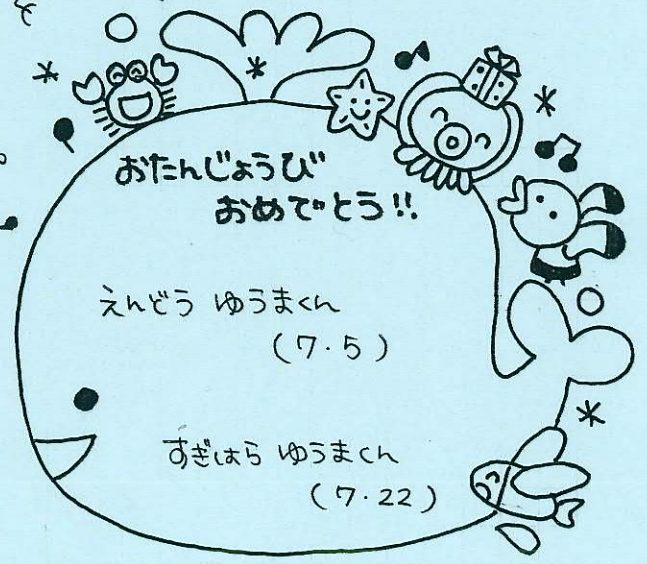 おたんじょうび
おめでとう!!
えんどう ゆうまくん
(7.5)
すぎはら ゆうまくん
(7.22)